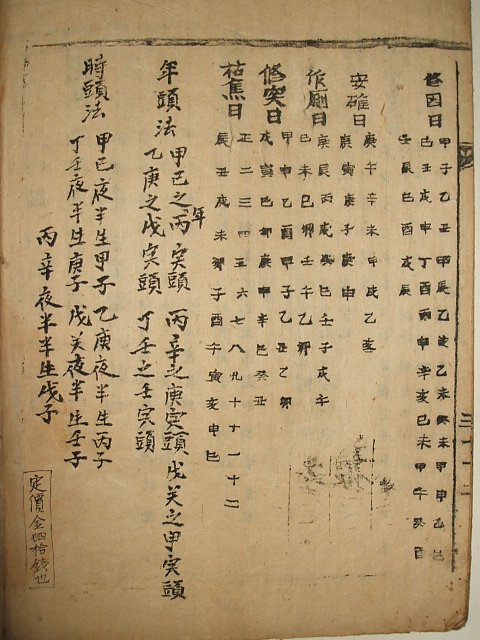 甲子乙丑甲辰乙 乙未癸未甲申乙
己丑 甲申丁酉 甲申辛亥己未甲午癸酉
壬辰己酉戌辰
安碓日
庚午辛未甲戌乙亥
庚寅庚子庚申
作厠日
庚辰丙戌癸巳壬子戌午
己未己卯壬午乙卯
修突日
甲申乙酉甲子乙丑乙卯
戌寅己卯庚申辛巳癸丑
枯焦日
正二三四五六七八九十十一十二
辰丑戌未卯子酉午寅亥申巳
年頭法
甲己之年丙寅頭 丙辛之庚寅頭 戊癸之甲寅頭
乙庚之戊寅頭 丁壬之壬寅頭
時頭法
甲己夜半生甲子 乙庚夜半生丙子
丁壬夜半生庚子 戊癸夜半生壬子
丙辛夜半半生戊子
定價金四拾錢也